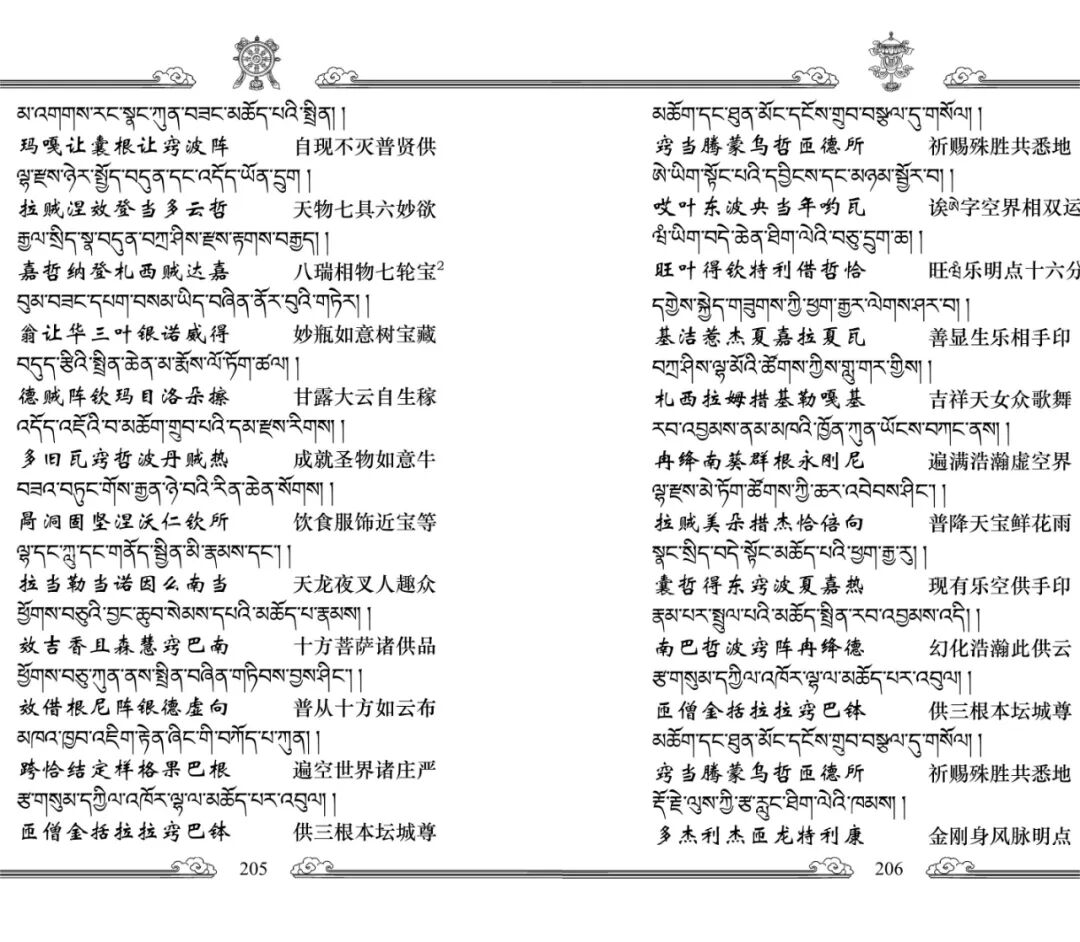 མ་འགགས་རང་སྣང་ཀུན་བཟང་མཆོད་པའི་སྤྲིན། །
玛嘎让囊根让窍波阵 自现不灭普贤供
ལྷ་རྫས་ཉེར་སྤྱོད་བདུན་དང་འདོད་ཡོན་དྲུག །
拉贼涅效登当多云哲 天物七具六妙欲
རྒྱལ་སྲིད་སྣ་བདུན་བཀྲ་ཤིས་རྫས་རྟགས་བརྒྱད། །
嘉哲纳登札西贼达嘉 八瑞相物七轮宝2
བུམ་བཟང་དཔག་བསམ་ཡིད་བཞིན་ནོར་བུའི་གཏེར། །
翁让华三叶银诺威得 妙瓶如意树宝藏
བདུད་རྩིའི་སྤྲིན་ཆེན་མ་རྨོས་ལོ་ཏོག་ཚལ། །
德贼阵钦玛目洛朵擦 甘露大云自生稼
འདོད་འཇོའི་བ་མཆོག་གྲུབ་པའི་དམ་རྫས་རིགས། །
多旧瓦窍哲波丹贼热 成就圣物如意牛
བཟའ་བཏུང་གོས་རྒྱན་ཉེ་བའི་རིན་ཆེན་སོགས། །
洞固坚涅沃仁钦所 饮食服饰近宝等
ལྷ་དང་ཀླུ་དང་གནོད་སྦྱིན་མི་རྣམས་དང་། །
拉当勒当诺因么南当 天龙夜叉人趣众
ཕྱོགས་བཅུའི་བྱང་ཆུབ་སེམས་དཔའི་མཆོད་པ་རྣམས། །
效吉香且森慧窍巴南 十方菩萨诸供品
ཕྱོགས་བཅུ་ཀུན་ནས་སྤྲིན་བཞིན་གཏིབས་བྱས་ཤིང་། །
效借根尼阵银德虚向 普从十方如云布
མཁའ་ཁྱབ་འཇིག་རྟེན་ཞིང་གི་བཀོད་པ་ཀུན། །
跨恰结定样格果巴根 遍空世界诸庄严
རྩ་གསུམ་དཀྱིལ་འཁོར་ལྷ་ལ་མཆོད་པར་འབུལ། །
匝僧金括拉拉窍巴钵 供三根本坛城尊
205
མཆོག་དང་ཐུན་མོང་དངོས་གྲུབ་བསྩལ་དུ་གསོལ། །
窍当腾蒙乌哲匝德所 祈赐殊胜共悉地
ཨེ་ཡིག་སྟོང་པའི་དབྱིངས་དང་མཉམ་སྦྱོར་བ། །
哎叶东波央当年哟瓦 诶ཨེ字空界相双运
ཡིག་བདེ་ཆེན་ཐིག་ལེའི་བཅུ་དྲུག་ཆ། །
旺叶得钦特利借哲恰 旺乐明点十六分
དགྱེས་སྐྱེད་གཟུགས་ཀྱི་ཕྱག་རྒྱར་ལེགས་ཤར་བ། །
基洁惹杰夏嘉拉夏瓦 善显生乐相手印
བཀྲ་ཤིས་ལྷ་མོའི་ཚོགས་ཀྱིས་གླུ་གར་གྱིས། །
札西拉姆措基勒嘎基 吉祥天女众歌舞
རབ་འབྱམས་ནམ་མཁའི་ཁྱོན་ཀུན་ཡོངས་བཀང་ནས། །
冉绛南葵群根永刚尼 遍满浩瀚虚空界
ལྷ་རྫས་མེ་ཏོག་ཚོགས་ཀྱི་ཆར་འབེབས་ཤིང་། །
拉贼美朵措杰恰倍向 普降天宝鲜花雨
སྣང་སྲིད་བདེ་སྟོང་མཆོད་པའི་ཕྱག་རྒྱ་རུ། །
囊哲得东窍波夏嘉热 现有乐空供手印
རྣམ་པར་སྤྲུལ་པའི་མཆོད་སྤྲིན་རབ་འབྱམས་འདི། །
南巴哲波窍阵冉绛德 幻化浩瀚此供云
རྩ་གསུམ་དཀྱིལ་འཁོར་ལྷ་ལ་མཆོད་པར་འབུལ། །
匝僧金括拉拉窍巴钵 供三根本坛城尊
མཆོག་དང་ཐུན་མོང་དངོས་གྲུབ་བསྩལ་དུ་གསོལ། །
窍当腾蒙乌哲匝德所 祈赐殊胜共悉地
རྡོ་རྗེ་ལུས་ཀྱི་རྩ་རླུང་ཐིག་ལེའི་ཁམས། །
多杰利杰匝龙特利康 金刚身风脉明点
206